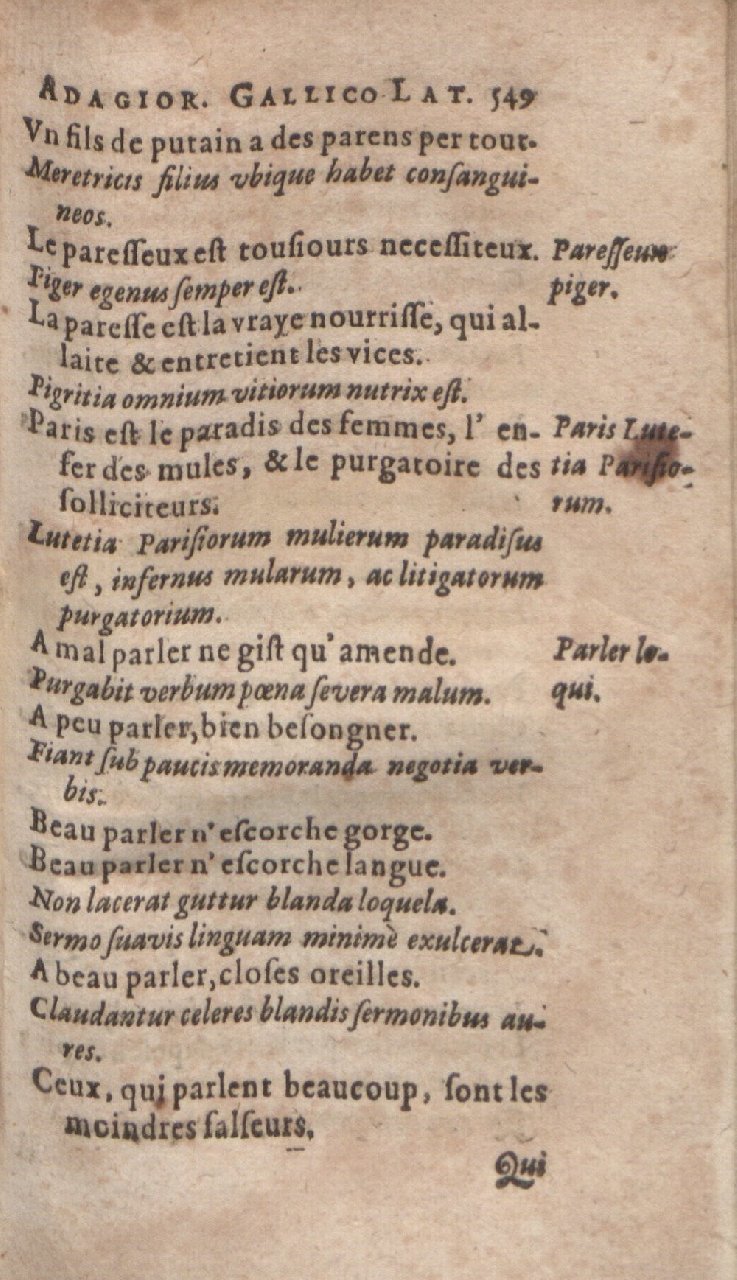 ADAGIOR. GALLICO LAT. 549
Vn fils de putain a des parens per tout.
Meretricis filius vbique habet conſangui-
neos.
Le pareſſeux eſt touſiours neceſſiteux. Pareſſeux
Piger egenus ſemper eſt. piger.
La pareſſe eſt la vraye nourriſſe, qui al-
laite & entretient les vices.
Pigritia omnium vitiorum nutrix eſt.
Paris est le paradis des femmes, l' en- Paris Lute-
fer des mules, & le purgatoire des tia Pariſio-
ſolliciteurs. rum.
Lutetia Pariſiorum mulierum paradiſus
eſt, infernus mularum, ac litigatorum
purgatorium.
A mal parler ne giſt qu'amende. Parler lo-
Purgabit verbum pœna ſevera malum. qui.
A peu parler, bien beſongner.
Fiant ſub paucis memoranda negotia ver-
bis.
Beau parler n'eſcorche gorge.
Beau parler n'eſcorche langue.
Non lacerat guttur blanda loquela.
Sermo ſuavis linguam minimè exulcerat.
A beau parler, cloſes oreilles.
Claudantur celeres blandis ſermonibus au-
res.
Ceux, qui parlent beaucoup, ſont les
moindres falſeurs.
Qui